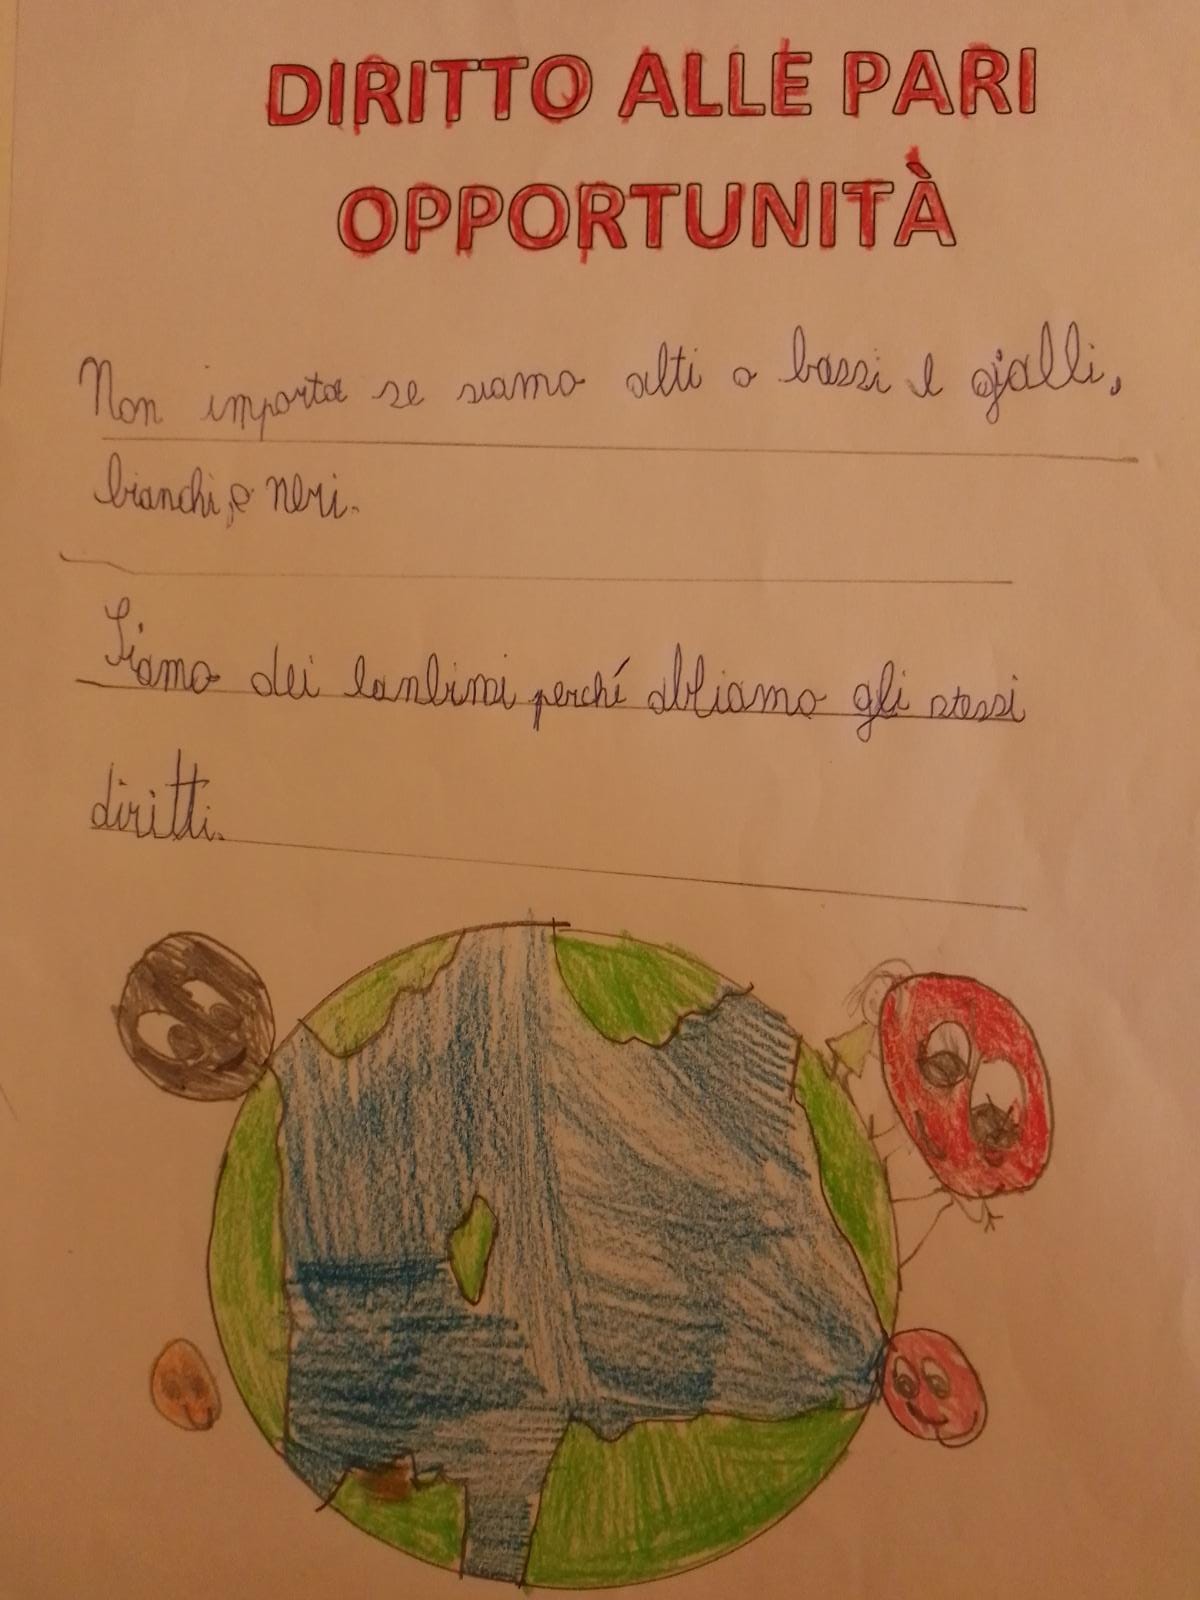 DIRITTO ALLE PARI
OPPORTUNITÀ
Non importa se siamo alti o bassi e gialli,
bianchi, e neri.
Siamo dei banbini perché abbiamo gli stessi
diritti.